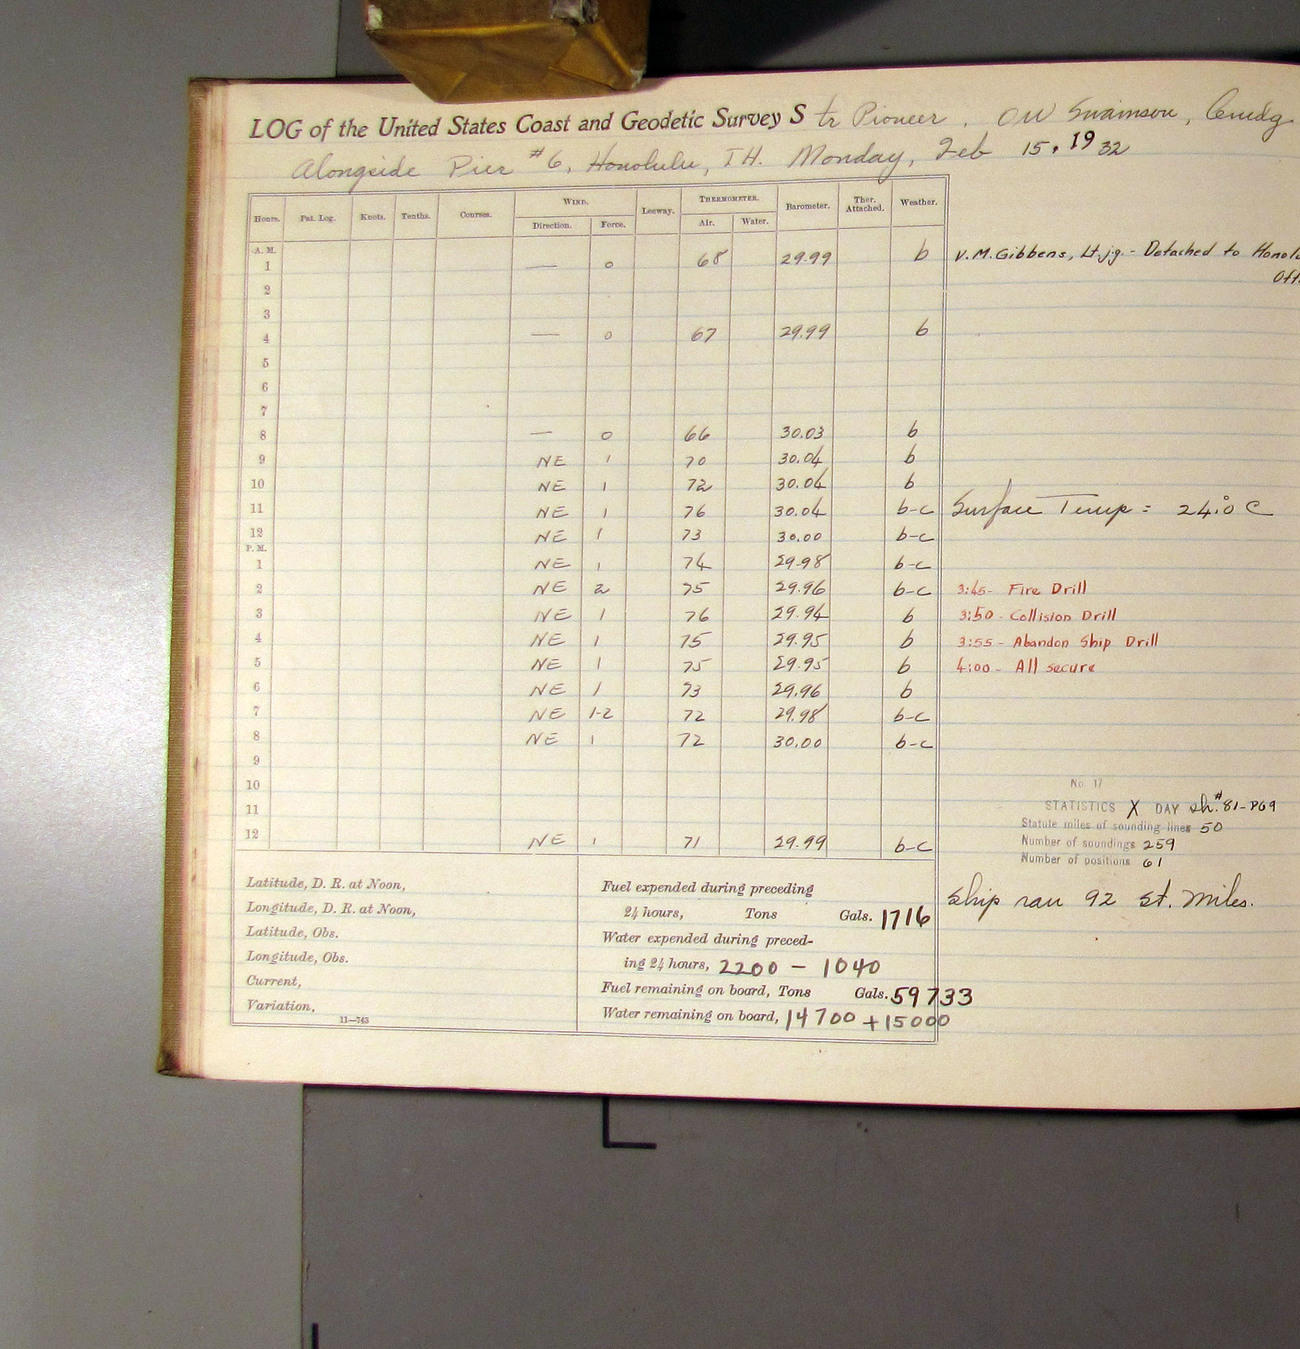 LOG of the United States Coast and Geodetic Survey Str Pioneer. OW Swainson, Comdg
Alongside Pier #6, Honolulu, T.H. Monday, Feb 15, 1932
Hours. Pat. Log. Knots. Tenths. Courses. WIND. Direction. Force. Leeway. THERMOMETER. Air. Water. Barometer. Ther. Attached. Weather.
A. M.
1 — 0 68 29.99 b V.M. Gibbens, Lt.jg. - Detached to
2
3
4 — 0 67 29.99 b
5
6
7
8 — 0 66 30.03 b
9 NE 1 70 30.04 b
10 NE 1 72 30.04 b
11 NE 1 76 30.04 b-c Surface Temp = 24.°0 C
12 NE 1 73 30.00 b-c
P. M.
1 NE 1 74 29.98 b-c
2 NE 2 75 29.96 b-c 3:45- Fire Drill
3 NE 1 76 29.94 b 3:50- Collision Drill
4 NE 1 75 29.95 b 3:55- Abandon Ship Drill
5 NE 1 75 29.95 b 4:00- All secure
6 NE 1 73 29.96 b
7 NE 1-2 72 29.98 b-c
8 NE 1 72 30.00 b-c
9
10
11
12 NE 1 71 29.99 b-c
No. 17
STATISTICS X DAY sh.#81-P69
Statute miles of sounding lines 50
Number of soundings 259
Number of positions 61
Ship ran 92 St. Miles.
Latitude, D. R. at Noon,
Longitude, D. R. at Noon,
Latitude, Obs.
Longitude, Obs.
Current,
Variation,
11—743
Fuel expended during preceding
24 hours, Tons Gals. 1716
Water expended during preced-
ing 24 hours, 2200 - 1040
Fuel remaining on board, Tons Gals. 59733
Water remaining on board, 14700 + 15000